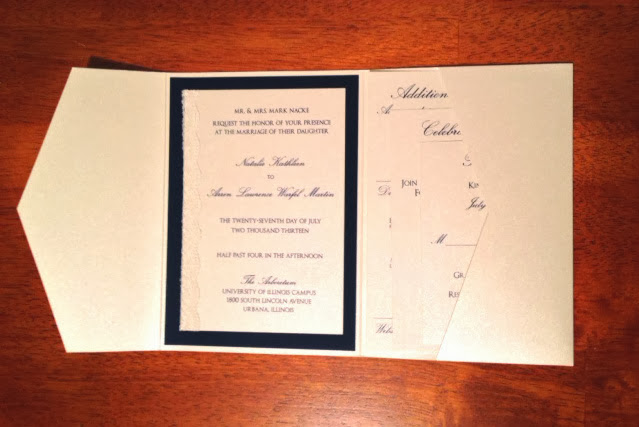 MR. & MRS. MARK NACKE
REQUEST THE HONOR OF YOUR PRESENCE
AT THE MARRIAGE OF THEIR DAUGHTER
Natalie Kathleen
TO
Aaron Lawrence Warfel Martin
THE TWENTY-SEVENTH DAY OF JULY
TWO THOUSAND THIRTEEN
HALF PAST FOUR IN THE AFTERNOON
The Arboretum
UNIVERSITY OF ILLINOIS CAMPUS
1800 SOUTH LINCOLN AVENUE
URBANA, ILLINOIS
Addition
Celebr
JOIN
July
M
GR
Webs